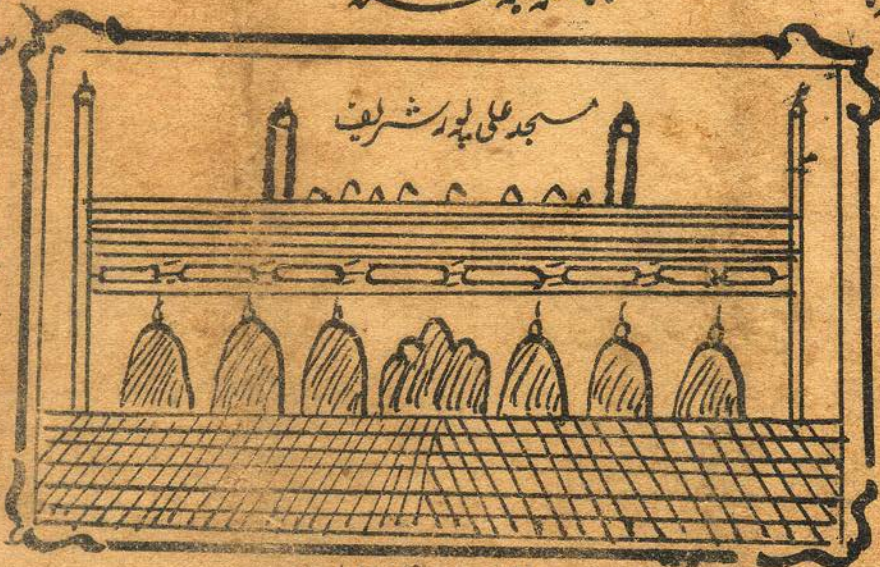 مسجد علی پور شریف